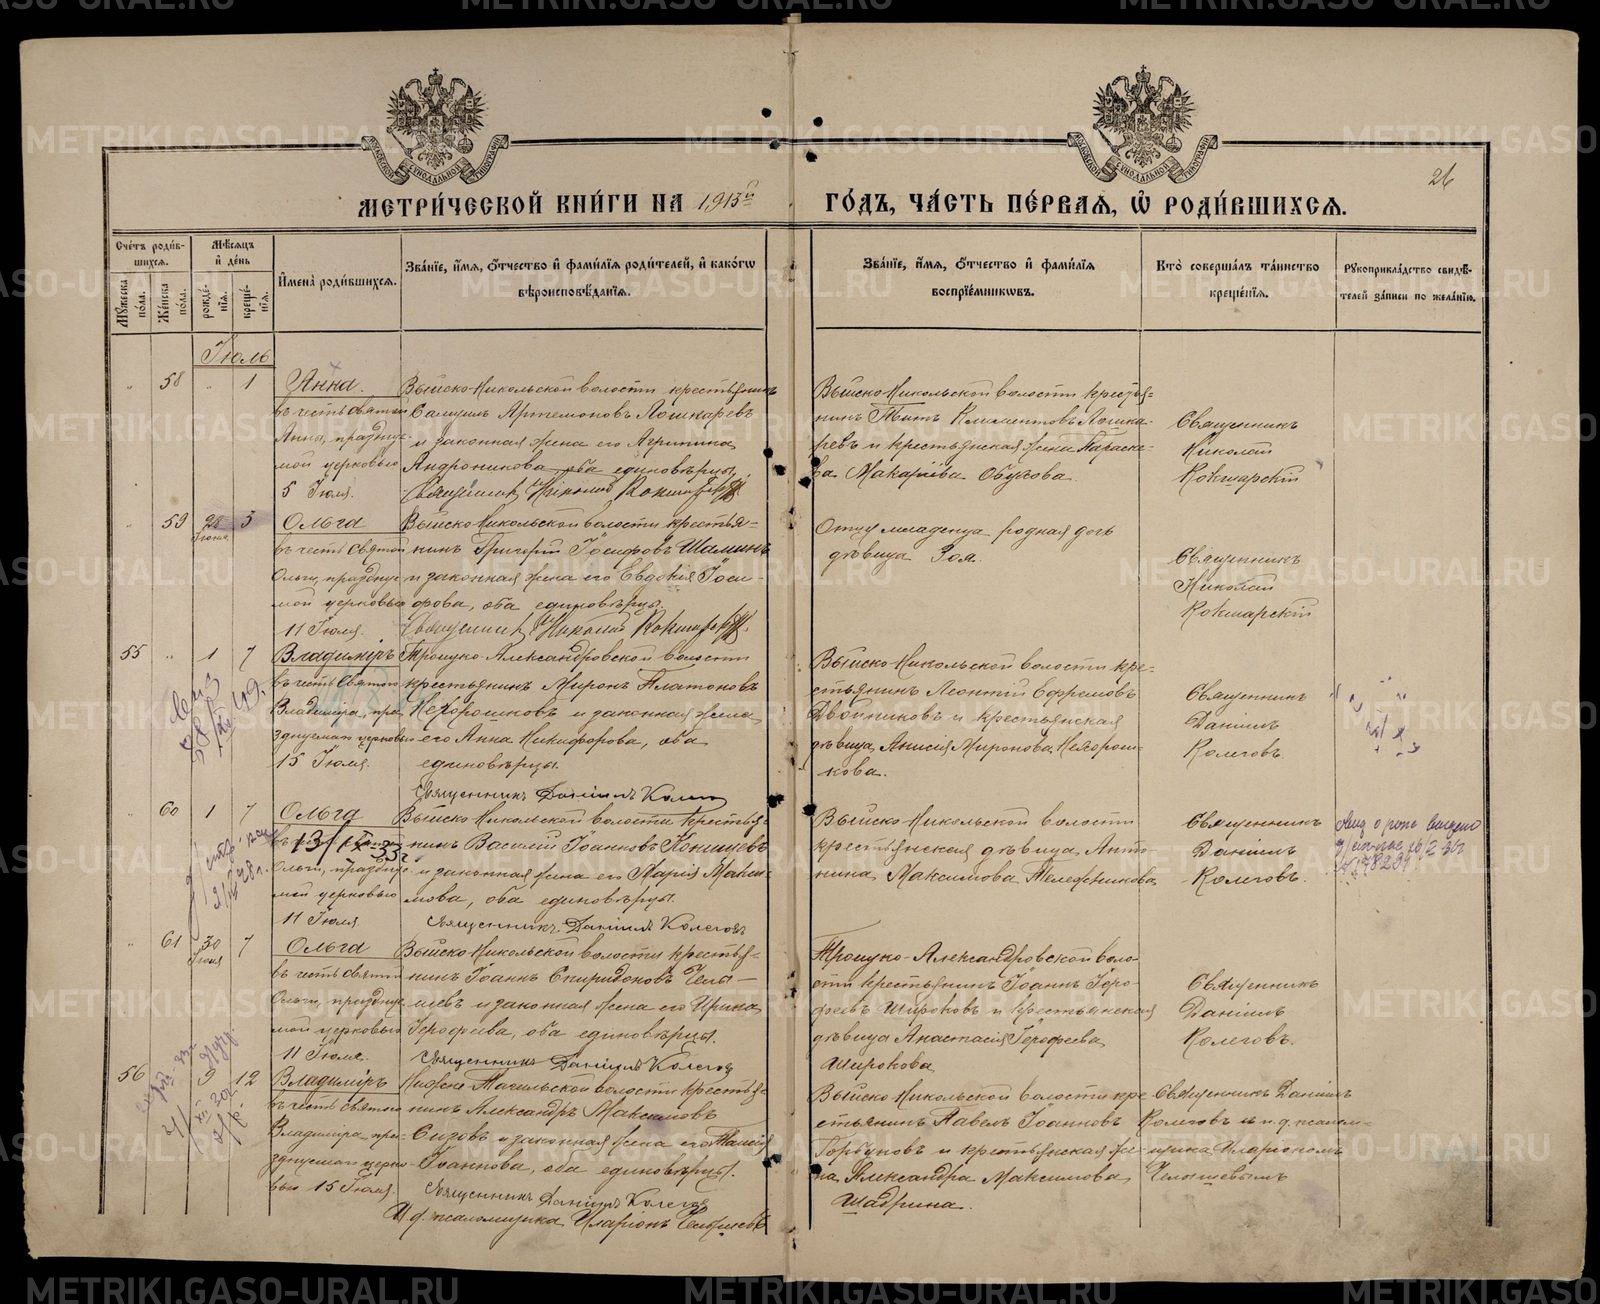 26
МЕТРИ́ЧЕСКОЙ КНИ́ГИ НА 1913й ГО́ДЪ, ЧА́СТЬ ПЕ́РВАЯ, Ѡ РОДИ́ВШИХСЯ.
Сче́тъ роди́вшихся.
Мѣ́сяцъ и де́нь
Му́жеска по́ла.
Же́нска по́ла.
рожде́нїя.
креще́нїя.
Имена̀ роди́вшихся.
Зва́нїе, и́мя, о́тчество и фами́лїя роди́телей, и како́гѡ вѣроисповѣ́данїя.
Зва́нїе, и́мя, о́тчество и фами́лїя воспрїе́мникѡвъ.
Кто̀ соверша́лъ та́инство креще́нїя.
Рукоприкла́дство свидѣ́телей за́писи по жела́нїю.
Іюль
58 " 1
Анна.
въ честь святой
Анны, празднуе-
мой церковью
5 Іюля.
Выйско-Никольской волости крестьянинъ
Самуилъ Артемоновъ Лошкаревъ
и законная жена его Агрипина
Андроникова, оба единовѣрцы.
Священникъ Николай Кокшарскій
Выйско-Никольской волости крестья-
нинъ Титъ Климентовъ Лошка-
ревъ и крестьянская жена Параске-
ва Макаріева Обухова.
Священникъ
Николай
Кокшарскій
59 28 Іюня 3
Ольга
въ честь святой
Ольги, празднуе-
мой церковью
11 Іюля.
Выйско-Никольской волости крестья-
нинъ Григорій Іосифовъ Шаминъ
и законная жена его Евдокія Іоси-
фова, оба единовѣрцы.
Священникъ Николай Кокшарскій
Отцу младенца родная дочь
дѣвица Зоя.
Священникъ
Николай
Кокшарскій
55 " 1 7
Владиміръ
въ честь святого
Владиміра, пра-
зднуемаго церковью
15 Іюля.
Троицко-Александровской волости
крестьянинъ Миронъ Платоновъ
Нехорошковъ и законная жена
его Анна Никифорова, оба
единовѣрцы.
Священникъ Даніилъ Колеговъ
Выйско-Никольской волости кре-
стьянинъ Леонтій Ефремовъ
Двойниковъ и крестьянская
дѣвица Анисія Миронова Нехорош-
кова.
Священникъ
Даніилъ
Колеговъ.
60 1 7
Ольга
Ольги, празднуе-
мой церковью
11 Іюля
Выйско-Никольской волости крестья-
нинъ Василій Іоанновъ Конышевъ
и законная жена его Марія Макси-
мова, оба единовѣрцы.
Священникъ Даніилъ Колеговъ
Выйско-Никольской волости
крестьянская дѣвица Анто-
нина Максимова Телефникова
Священникъ
Даніилъ
Колеговъ.
61 30 Іюня 7
Ольга
въ честь святой
Ольги, празднуе-
мой церковью
11 Іюля.
Выйско-Никольской волости крестья-
нинъ Іоаннъ Спиридоновъ Челы-
шевъ и законная жена его Ирина
Іерофеева, оба единовѣрцы.
Священникъ Даніилъ Колеговъ
Троицко-Александровской воло-
сти крестьянинъ Іоаннъ Іеро-
феевъ Широковъ и крестьянская
дѣвица Анастасія Іерофеева
Широкова.
Священникъ
Даніилъ
Колеговъ.
56 9 12
Владиміръ
въ честь святого
Владиміра, пра-
зднуемаго церко-
вью 15 Іюля.
Нижне-Тагильской волости крестья-
нинъ Александръ Максимовъ
Сизовъ и законная жена его Таисія
Іоаннова, оба единовѣрцы.
Священникъ Даніилъ Колеговъ
И. д. псаломщика Иларіонъ Челышевъ
Выйско-Никольской волости кре-
стьянинъ Павелъ Іоанновъ
Горбуновъ и крестьянская же-
на Александра Максимова
Шадрина.
Священникъ Даніилъ
Колеговъ и и. д. псалом-
щика Иларіономъ
Челышевымъ
METRIKI.GASO-URAL.RU